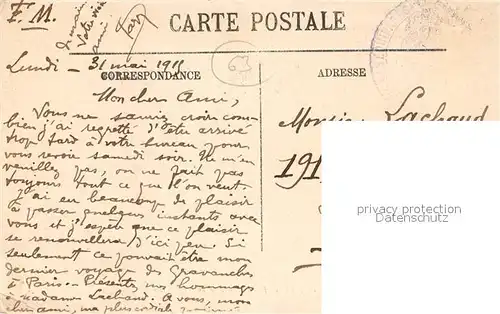 F. M.
CARTE POSTALE
Demain
Votre vieil
ami
Lundi - 31 mai 1915
63
CORRESPONDANCE
ADRESSE
Mon cher Ami,
Vous ne saurez croire com-
bien j'ai regretté d'être arrivé
trop tard à votre bureau pour
vous revoir samedi soir. Ne m'en
veuillez pas, on ne fait pas
toujours tout ce que l'on veut.
J'ai eu beaucoup de plaisir
à passer quelques instants avec
vous et j'espère que ce plaisir
se renouvellera d'ici peu. Si
seulement ce pouvait être mon
dernier voyage des Gravanches
à Paris - Présentez mes hommages
à Madame Lachaud. A vous, mon
cher ami, ma plus cordiale
Lachaud
191
privacy protection
privacy protection